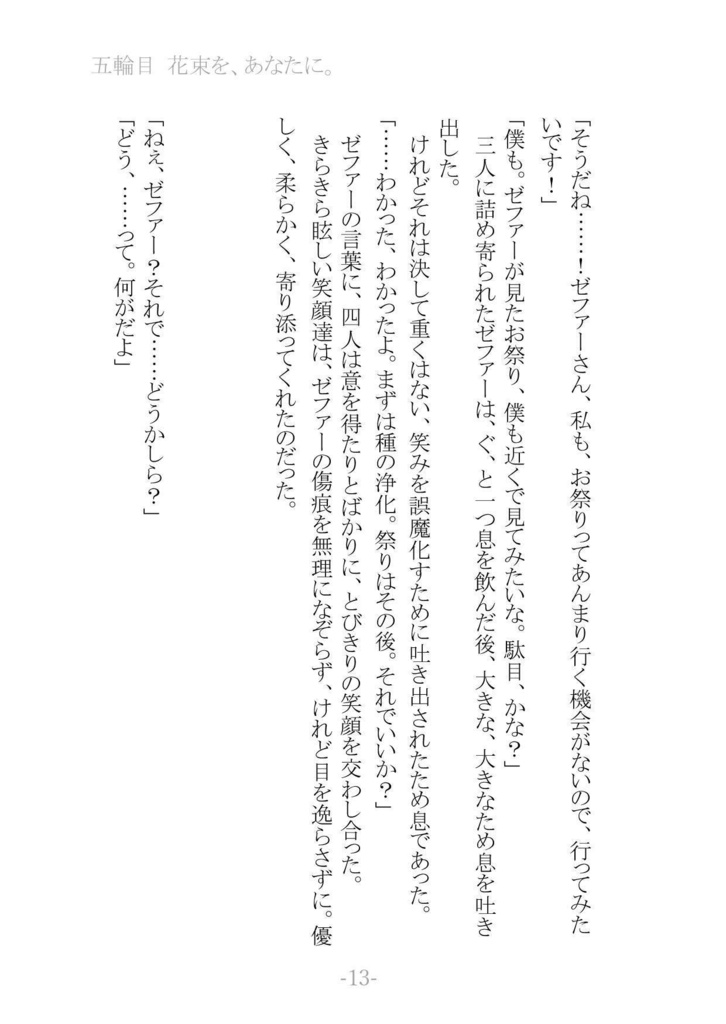 五輪目　花束を、あなたに。
「そうだね……！ゼファーさん、私も、お祭りってあんまり行く機会がないので、行ってみた
いです！」
「僕も。ゼファーが見たお祭り、僕も近くで見てみたいな。駄目、かな？」
　三人に詰め寄られたゼファーは、ぐ、と一つ息を飲んだ後、大きな、大きなため息を吐き
出した。
　けれどそれは決して重くはない、笑みを誤魔化すために吐き出されたため息であった。
「……わかった、わかったよ。まずは種の浄化。祭りはその後。それでいいか？」
　ゼファーの言葉に、四人は意を得たりとばかりに、とびきりの笑顔を交わし合った。
　きらきら眩しい笑顔達は、ゼファーの傷痕を無理になぞらず、けれど目を逸らさずに。優
しく、柔らかく、寄り添ってくれたのだった。
「ねぇ、ゼファー？それで……どうかしら？」
「どう、……って。何がだよ」
-13-